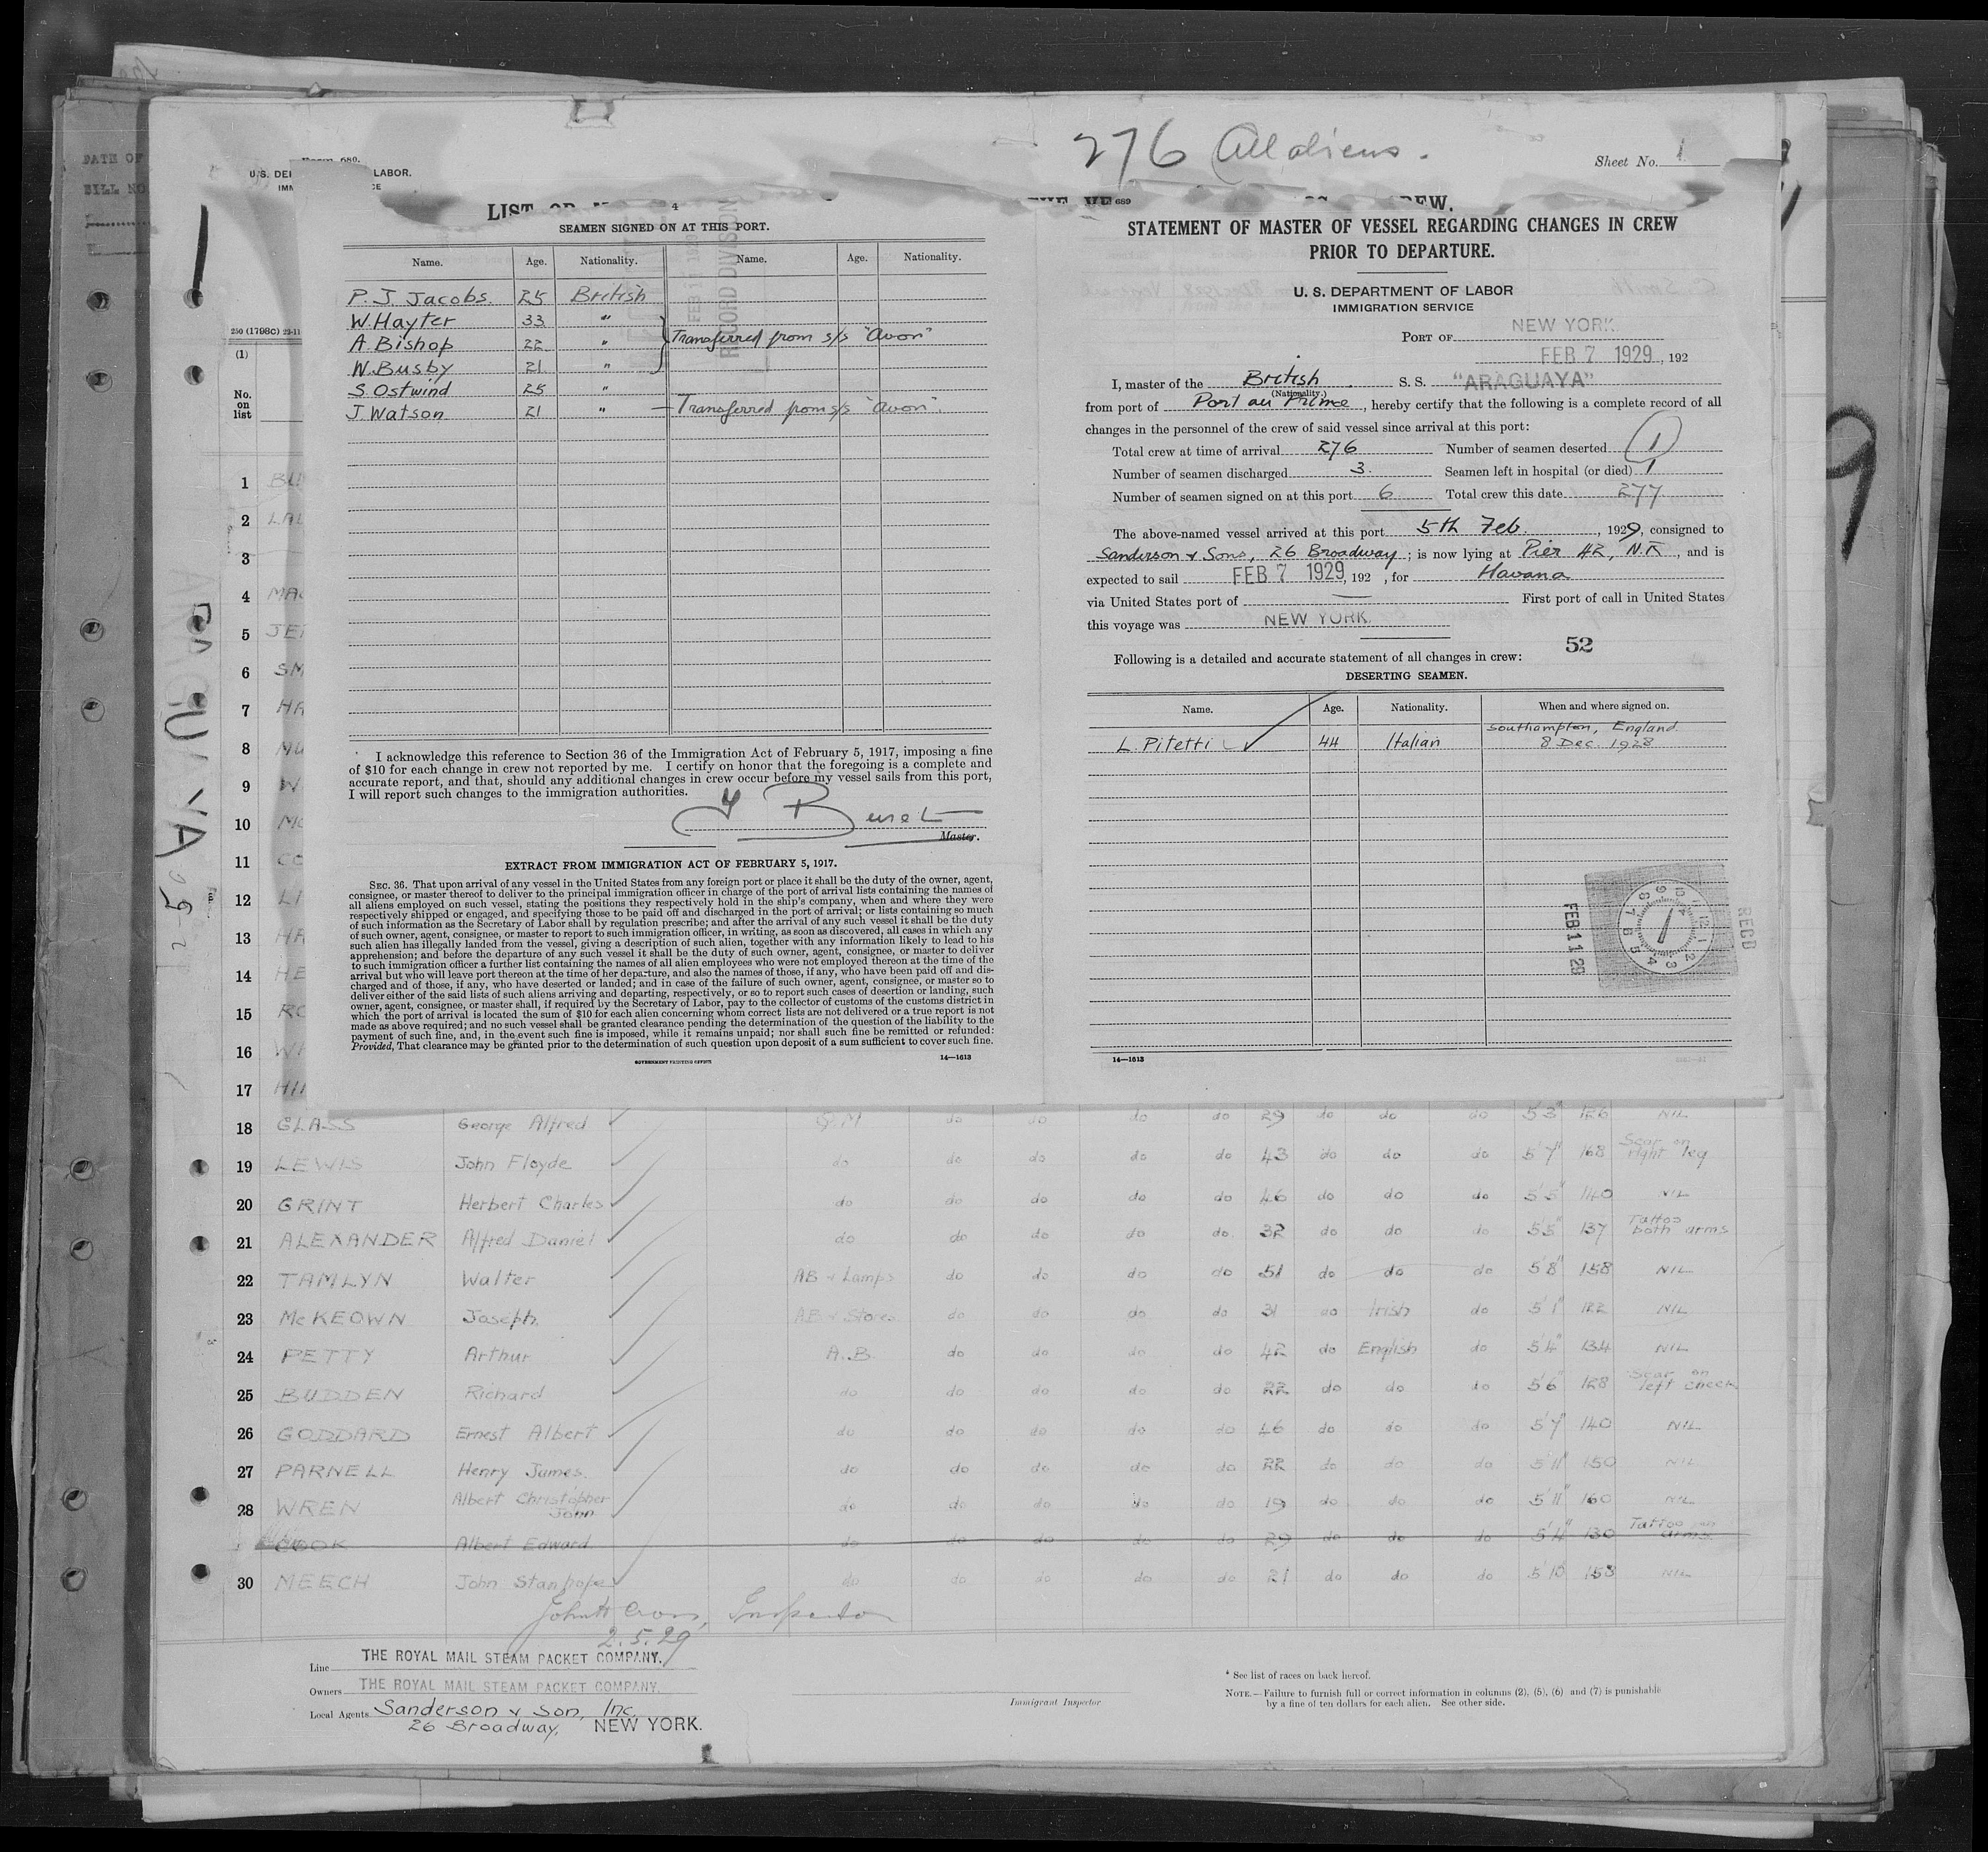 276 All aliens.
Sheet No. 1
U.S. DE LABOR.
4
SEAMEN SIGNED ON AT THIS PORT.
Name. Age. Nationality. Name. Age. Nationality.
P. J. Jacobs. 25 British
W. Hayter 33 "
A. Bishop 22 " Transferred from s/s "Avon"
W. Busby 21 "
S. Ostwind 25 "
J. Watson 21 " — Transferred from s/s "Avon"
I acknowledge this reference to Section 36 of the Immigration Act of February 5, 1917, imposing a fine
of $10 for each change in crew not reported by me. I certify on honor that the foregoing is a complete and
accurate report, and that, should any additional changes in crew occur before my vessel sails from this port,
I will report such changes to the immigration authorities.
Master.
EXTRACT FROM IMMIGRATION ACT OF FEBRUARY 5, 1917.
SEC. 36. That upon arrival of any vessel in the United States from any foreign port or place it shall be the duty of the owner, agent,
consignee, or master thereof to deliver to the principal immigration officer in charge of the port of arrival lists containing the names of
all aliens employed on such vessel, stating the positions they respectively hold in the ship's company, when and where they were
respectively shipped or engaged, and specifying those to be paid off and discharged in the port of arrival; or lists containing so much
of such information as the Secretary of Labor shall by regulation prescribe; and after the arrival of any such vessel it shall be the duty
of such owner, agent, consignee, or master to report to such immigration officer, in writing, as soon as discovered, all cases in which any
such alien has illegally landed from the vessel, giving a description of such alien, together with any information likely to lead to his
apprehension; and before the departure of any such vessel it shall be the duty of such owner, agent, consignee, or master to deliver
to such immigration officer a further list containing the names of all alien employees who were not employed thereon at the time of the
arrival but who will leave port thereon at the time of her departure, and also the names of those, if any, who have been paid off and dis-
charged and of those, if any, who have deserted or landed; and in case of the failure of such owner, agent, consignee, or master so to
deliver either of the said lists of such aliens arriving and departing, respectively, or so to report such cases of desertion or landing, such
owner, agent, consignee, or master shall, if required by the Secretary of Labor, pay to the collector of customs of the customs district in
which the port of arrival is located the sum of $10 for each alien concerning whom correct lists are not delivered or a true report is not
made as above required; and no such vessel shall be granted clearance pending the determination of the question of the liability to the
payment of such fine, and, in the event such fine is imposed, while it remains unpaid; nor shall such fine be remitted or refunded:
Provided, That clearance may be granted prior to the determination of such question upon deposit of a sum sufficient to cover such fine.
GOVERNMENT PRINTING OFFICE 14—1613
689
STATEMENT OF MASTER OF VESSEL REGARDING CHANGES IN CREW
PRIOR TO DEPARTURE.
U. S. DEPARTMENT OF LABOR
IMMIGRATION SERVICE
PORT OF NEW YORK
FEB 7 1929, 192
I, master of the British S. S. "ARAGUAYA"
(Nationality.)
from port of Port au Prince, hereby certify that the following is a complete record of all
changes in the personnel of the crew of said vessel since arrival at this port:
Total crew at time of arrival 276 Number of seamen deserted 1
Number of seamen discharged 3. Seamen left in hospital (or died) 1
Number of seamen signed on at this port 6 Total crew this date 277
The above-named vessel arrived at this port 5th Feb., 1929, consigned to
Sanderson & Sons, 26 Broadway; is now lying at Pier 42, N.R, and is
expected to sail FEB 7 1929, 192 , for Havana
via United States port of — First port of call in United States
this voyage was NEW YORK.
52
Following is a detailed and accurate statement of all changes in crew:
DESERTING SEAMEN.
Name. Age. Nationality. When and where signed on.
L. Pitetti 44 Italian Southampton, England
8 Dec. 1928
FEB 11 29
RECD
14—1613
250 (1798C) 22-11
(1)
No.
on
list
1
2
3
4
5
6
7
8
9
10
11
12
13
14
15
16
17
18 GLASS George Alfred QM do do do do 29 do do do 5'3" 126 NIL
19 LEWIS John Floyde do do do do do 43 do do do 5'7" 168 Scar on right leg
20 GRINT Herbert Charles do do do do do 46 do do do 5'5" 140 NIL
21 ALEXANDER Alfred Daniel do do do do do 32 do do do 5'5" 137 Tattoo both arms
22 TAMLYN Walter AB & Lamps do do do do 51 do do do 5'8" 158 NIL
23 McKEOWN Joseph AB & Stores do do do do 31 do Irish do 5'1" 122 NIL
24 PETTY Arthur A.B. do do do do 42 do English do 5'4" 134 NIL
25 BUDDEN Richard do do do do do 22 do do do 5'6" 128 Scar on left cheek
26 GODDARD Ernest Albert do do do do do 46 do do do 5'7" 140 NIL
27 PARNELL Henry James do do do do do 22 do do do 5'11" 150 NIL
28 WREN Albert Christopher John do do do do do 19 do do do 5'11" 160 NIL
COOK Albert Edward do do do do do 29 do do do 5'4" 130 Tattoo on arms
30 MEECH John Stanhope do do do do do 21 do do do 5'10 153 NIL
John H Cross, Inspector
2.5.29
Line THE ROYAL MAIL STEAM PACKET COMPANY.
Owners THE ROYAL MAIL STEAM PACKET COMPANY.
Local Agents Sanderson & Son, Inc.
26 Broadway, NEW YORK.
Immigrant Inspector
* See list of races on back hereof.
NOTE.—Failure to furnish full or correct information in columns (2), (5), (6) and (7) is punishable
by a fine of ten dollars for each alien. See other side.